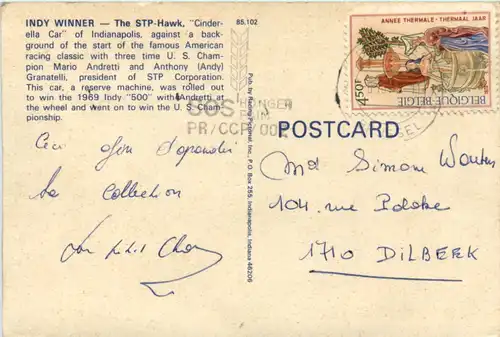 INDY WINNER — The STP-Hawk, "Cinder-
ella Car" of Indianapolis, against a back-
ground of the start of the famous American
racing classic with three time U. S. Cham-
pion Mario Andretti and Anthony (Andy)
Granatelli, president of STP Corporation.
This car, a reserve machine, was rolled out
to win the 1969 Indy "500" with Andretti at
the wheel and went on to win the U. S. Cham-
pionship.
85.102
Ceci afin
la collection
Pub. by Racing Pictorial, Inc., P.O. Box 255, Indianapolis, Indiana 46206
SOS HONGER
PR/CCP 000
ANNEE THERMALE - THERMAAL JAAR
450F
BELGIQUE BELGIE
POSTCARD
Md Simon Wouters
104, rue
1710 DILBEEK